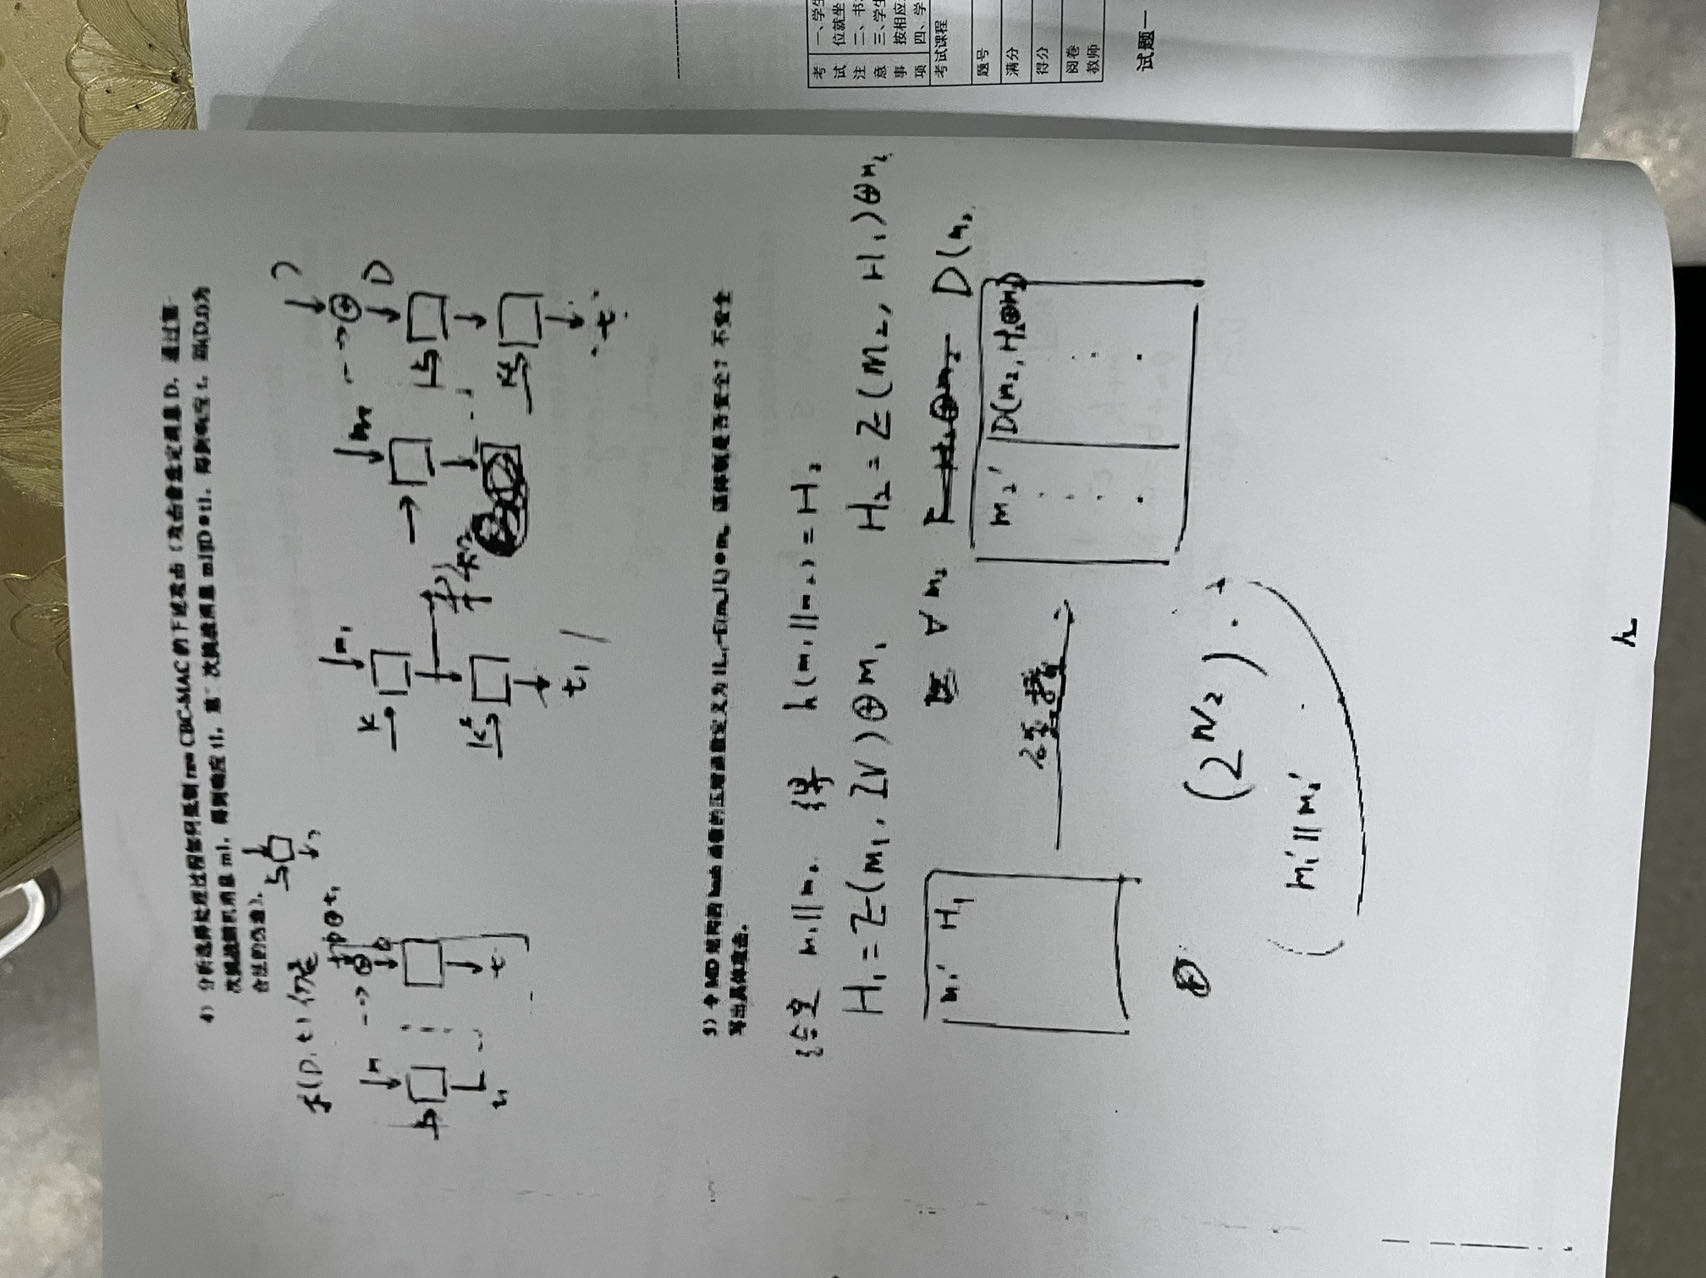 4）分析选择处理过程如何抵制 raw CBC-MAC 的下述攻击（攻击者选定消息 D，通过第一
次挑战随机消息 m1，得到响应 t1，第 次挑战消息 m1||D⊕t1，得到响应 t，则(D,t)为
合法的伪造）。
求(D, t)
D⊕t₁
m
D
k
t
m₁
K
K²
t₁
m
D
t
5）令 MD 结构的 hash 函数的压缩函数定义为 H =E(m ,H )⊕m 该体制是否安全？不安全
写出具体攻击。
给定 m₁||m₂ 得 h(m₁||m₂) = H₂
H₁ = E(m₁, IV)⊕m₁ H₂ = E(m₂, H₁)⊕m₂
∀ m₂ D(m₂
m₁' H₁
碰撞
m₂' D(m₂, H₂⊕m₂)
(2^{N/2}).
m₁'||m₂'
考试注意事项
一、学生
位就坐
二、书
三、学生
按相应
四、学
考试课程
题号
满分
得分
阅卷
教师
试题一